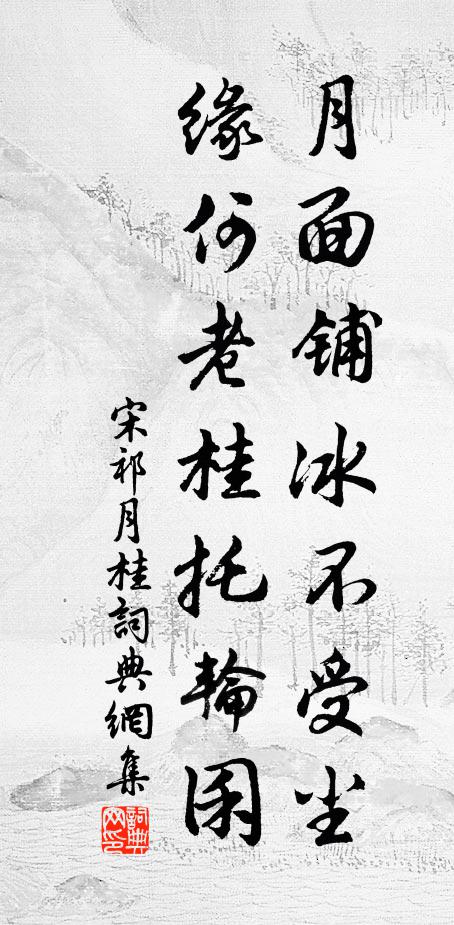 月面鋪冰不受尘
緣何老桂托輪囷
宋祁月桂詞典網集
詞典网印